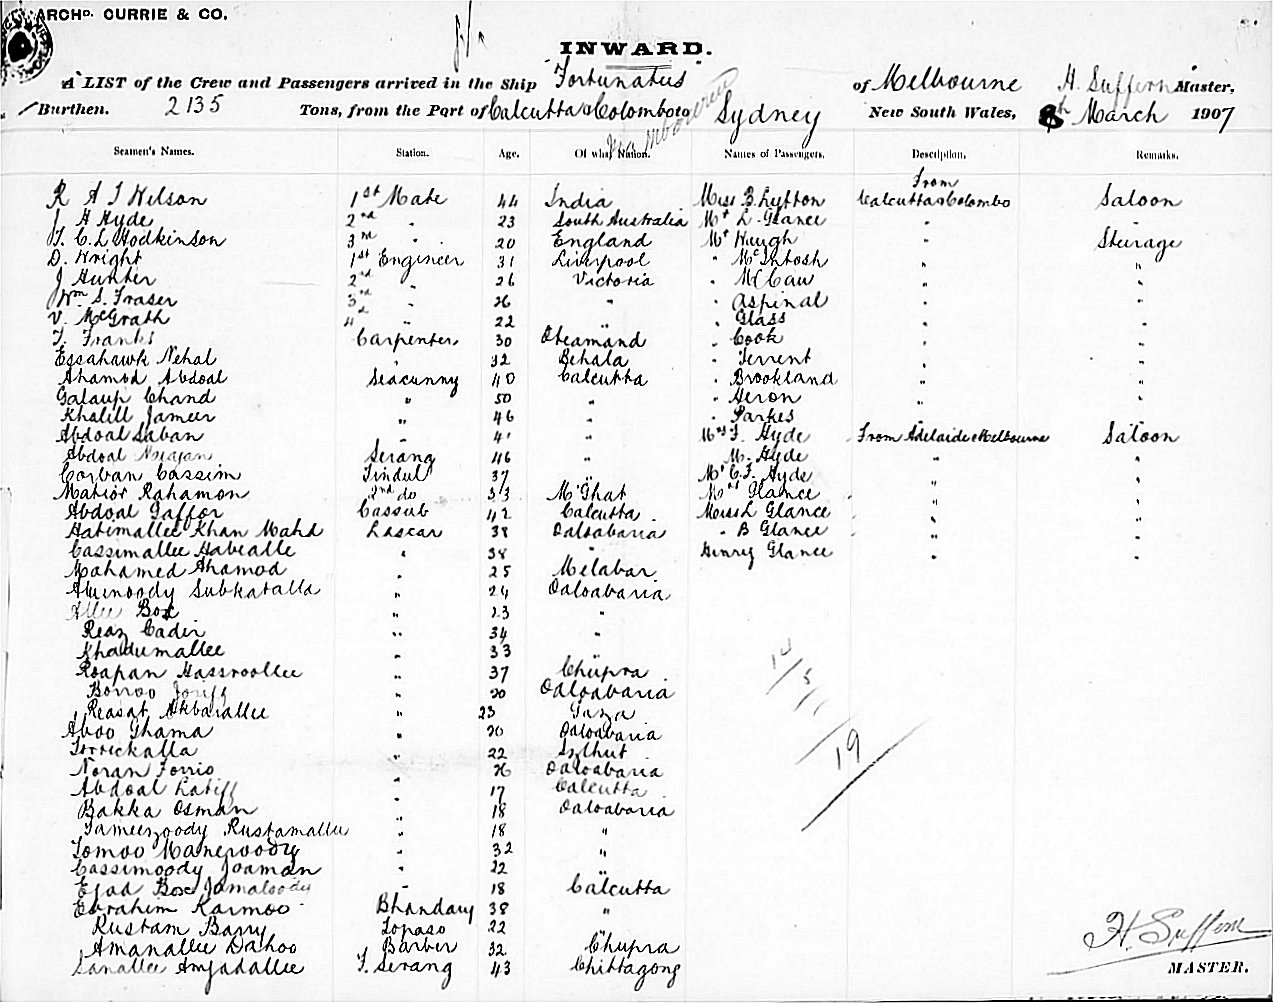 ARCHD. CURRIE & CO.
INWARD.
A LIST of the Crew and Passengers arrived in the Ship Fortunatus of Melbourne H. Suffern Master,
Burthen. 2135 Tons, from the Port of Calcutta & Colombo to Sydney New South Wales, 8th March 1907
via Melbourne
Seamen's Names. Station. Age. Of what Nation. Names of Passengers. Description. Remarks.
From
R A J Wilson 1st Mate 44 India Miss B. Lytton Calcutta & Colombo Saloon
J H Hyde 2nd " 23 South Australia Mr L. Glance " "
T. C. L Hodkinson 3rd " 20 England Mr Waugh " Steerage
D. Wright 1st Engineer 31 Liverpool " McIntosh " "
J Hunter 2nd " 26 Victoria " McCaw " "
Wm S. Fraser 3rd " 26 " " Aspinal " "
V. McGrath 4th " 22 " " Glass " "
T. Franks Carpenter 30 " Cook " "
Essahawk Nehal " 32 Behala " Terrent " "
Ahamod Abdoal Seacunny 40 Calcutta " Brookland " "
Galaup Chand " 50 " " Heron " "
Khalill Jameer " 46 " " Parkes " "
Abdoal Saban " 41 " Mrs F. Hyde From Adelaide & Melbourne Saloon
Abdoal Serang 46 " M. Hyde " "
Corban Cassim Tindul 37 " Mr C. F. Hyde " "
Matior Rahamon 2nd do 33 M'Ghat Mrs Glance " "
Abdoal Gaffor Cassub 42 Calcutta Miss L Glance " "
Hatimallee Khan Mahd Lascar 38 Daloabaria " B Glance " "
Cassimallee Habealle " 38 " Henry Glance " "
Mahamed Ahamod " 25 Melabar
Aminoody Subkatalla " 24 Daloabaria
Allee Box " 23 "
Reaz Cadir " 34 "
Khadumallee " 33 "
Roapan Hassroollee " 37 Chupra
Borroo " 20 Daloabaria
Reasat Akbarallee " 23 Gaza
Aboo Ghama " 20 Daloabaria
Torrickalla " 22 Sylhut
Noran Forrio " 26 Daloabaria
Abdoal Latiff " 17 Calcutta
Bakka Osman " 18 Daloabaria
Tameezoody Rustamallee " 18 "
Tomoo Maneroody " 32 "
Cassimoody Joaman " 22 "
Ejad Box Jamaloody " 18 Calcutta
Ebrahim Karmoo Bhandary 38 "
Rustam Barry Topaso 22 "
Amanallee Dahoo Barber 32 Chupra
Sanallee Amjadallee F. Serang 43 Chittagong
14
5
19
H. Suffern
MASTER.